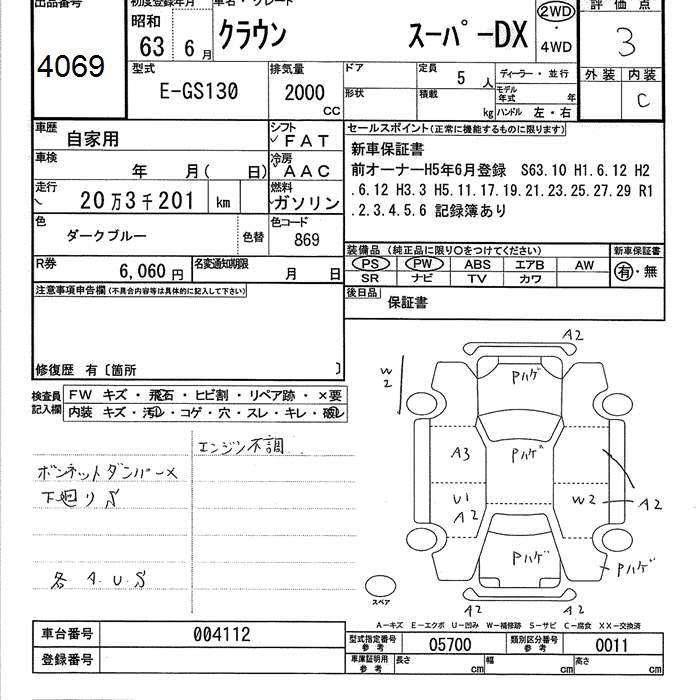 出品番号 初度登録年月 車名・グレード 評価点
4069
昭和 63 6月 クラウン スーパーDX 2WD・4WD 3
外装 内装
C
型式 排気量 ドア 定員 5人 ディーラー・並行
E-GS130 2000 CC 形状 積載 kg モデル年式 年
ハンドル 左・右
車歴 自家用 シフト FAT
車検 年 月( 日) 冷房 AAC
走行 20万3千201 km 燃料 ガソリン
色 ダークブルー 色替 色コード 869
R券 6,060円 名変通知期限 月 日
セールスポイント(正常に機能するものに限ります)
新車保証書
前オーナーH5年6月登録 S63.10 H1.6.12 H2
.6.12 H3.3 H5.11.17.19.21.23.25.27.29 R1
.2.3.4.5.6 記録簿あり
装備品(純正品に限り○をつけてください) 新車保証書
PS PW ABS エアB AW 有・無
SR ナビ TV カワ
後日品 保証書
注意事項申告欄(不具合内容等は具体的に記入して下さい)
修復歴 有〔箇所 〕
検査員記入欄
FW キズ・飛石・ヒビ割・リペア跡・×要
内装 キズ・汚レ・コゲ・穴・スレ・キレ・破レ
エンジン不調
ボンネットダンパー×
下廻りS
各 A.U.S
A2
W2
Pハゲ
A3
Pハゲ
U1
A2
W2
A2
Pハゲ
Pハゲ
スペア
A2
A2
A-キズ E-エクボ U-凹み W-補修跡 S-サビ C-腐食 XX-交換済
車台番号 004112
登録番号
型式指定番号 参考 05700 類別区分番号 参考 0011
車庫証明用 参考 長さ cm 幅 cm 高さ cm